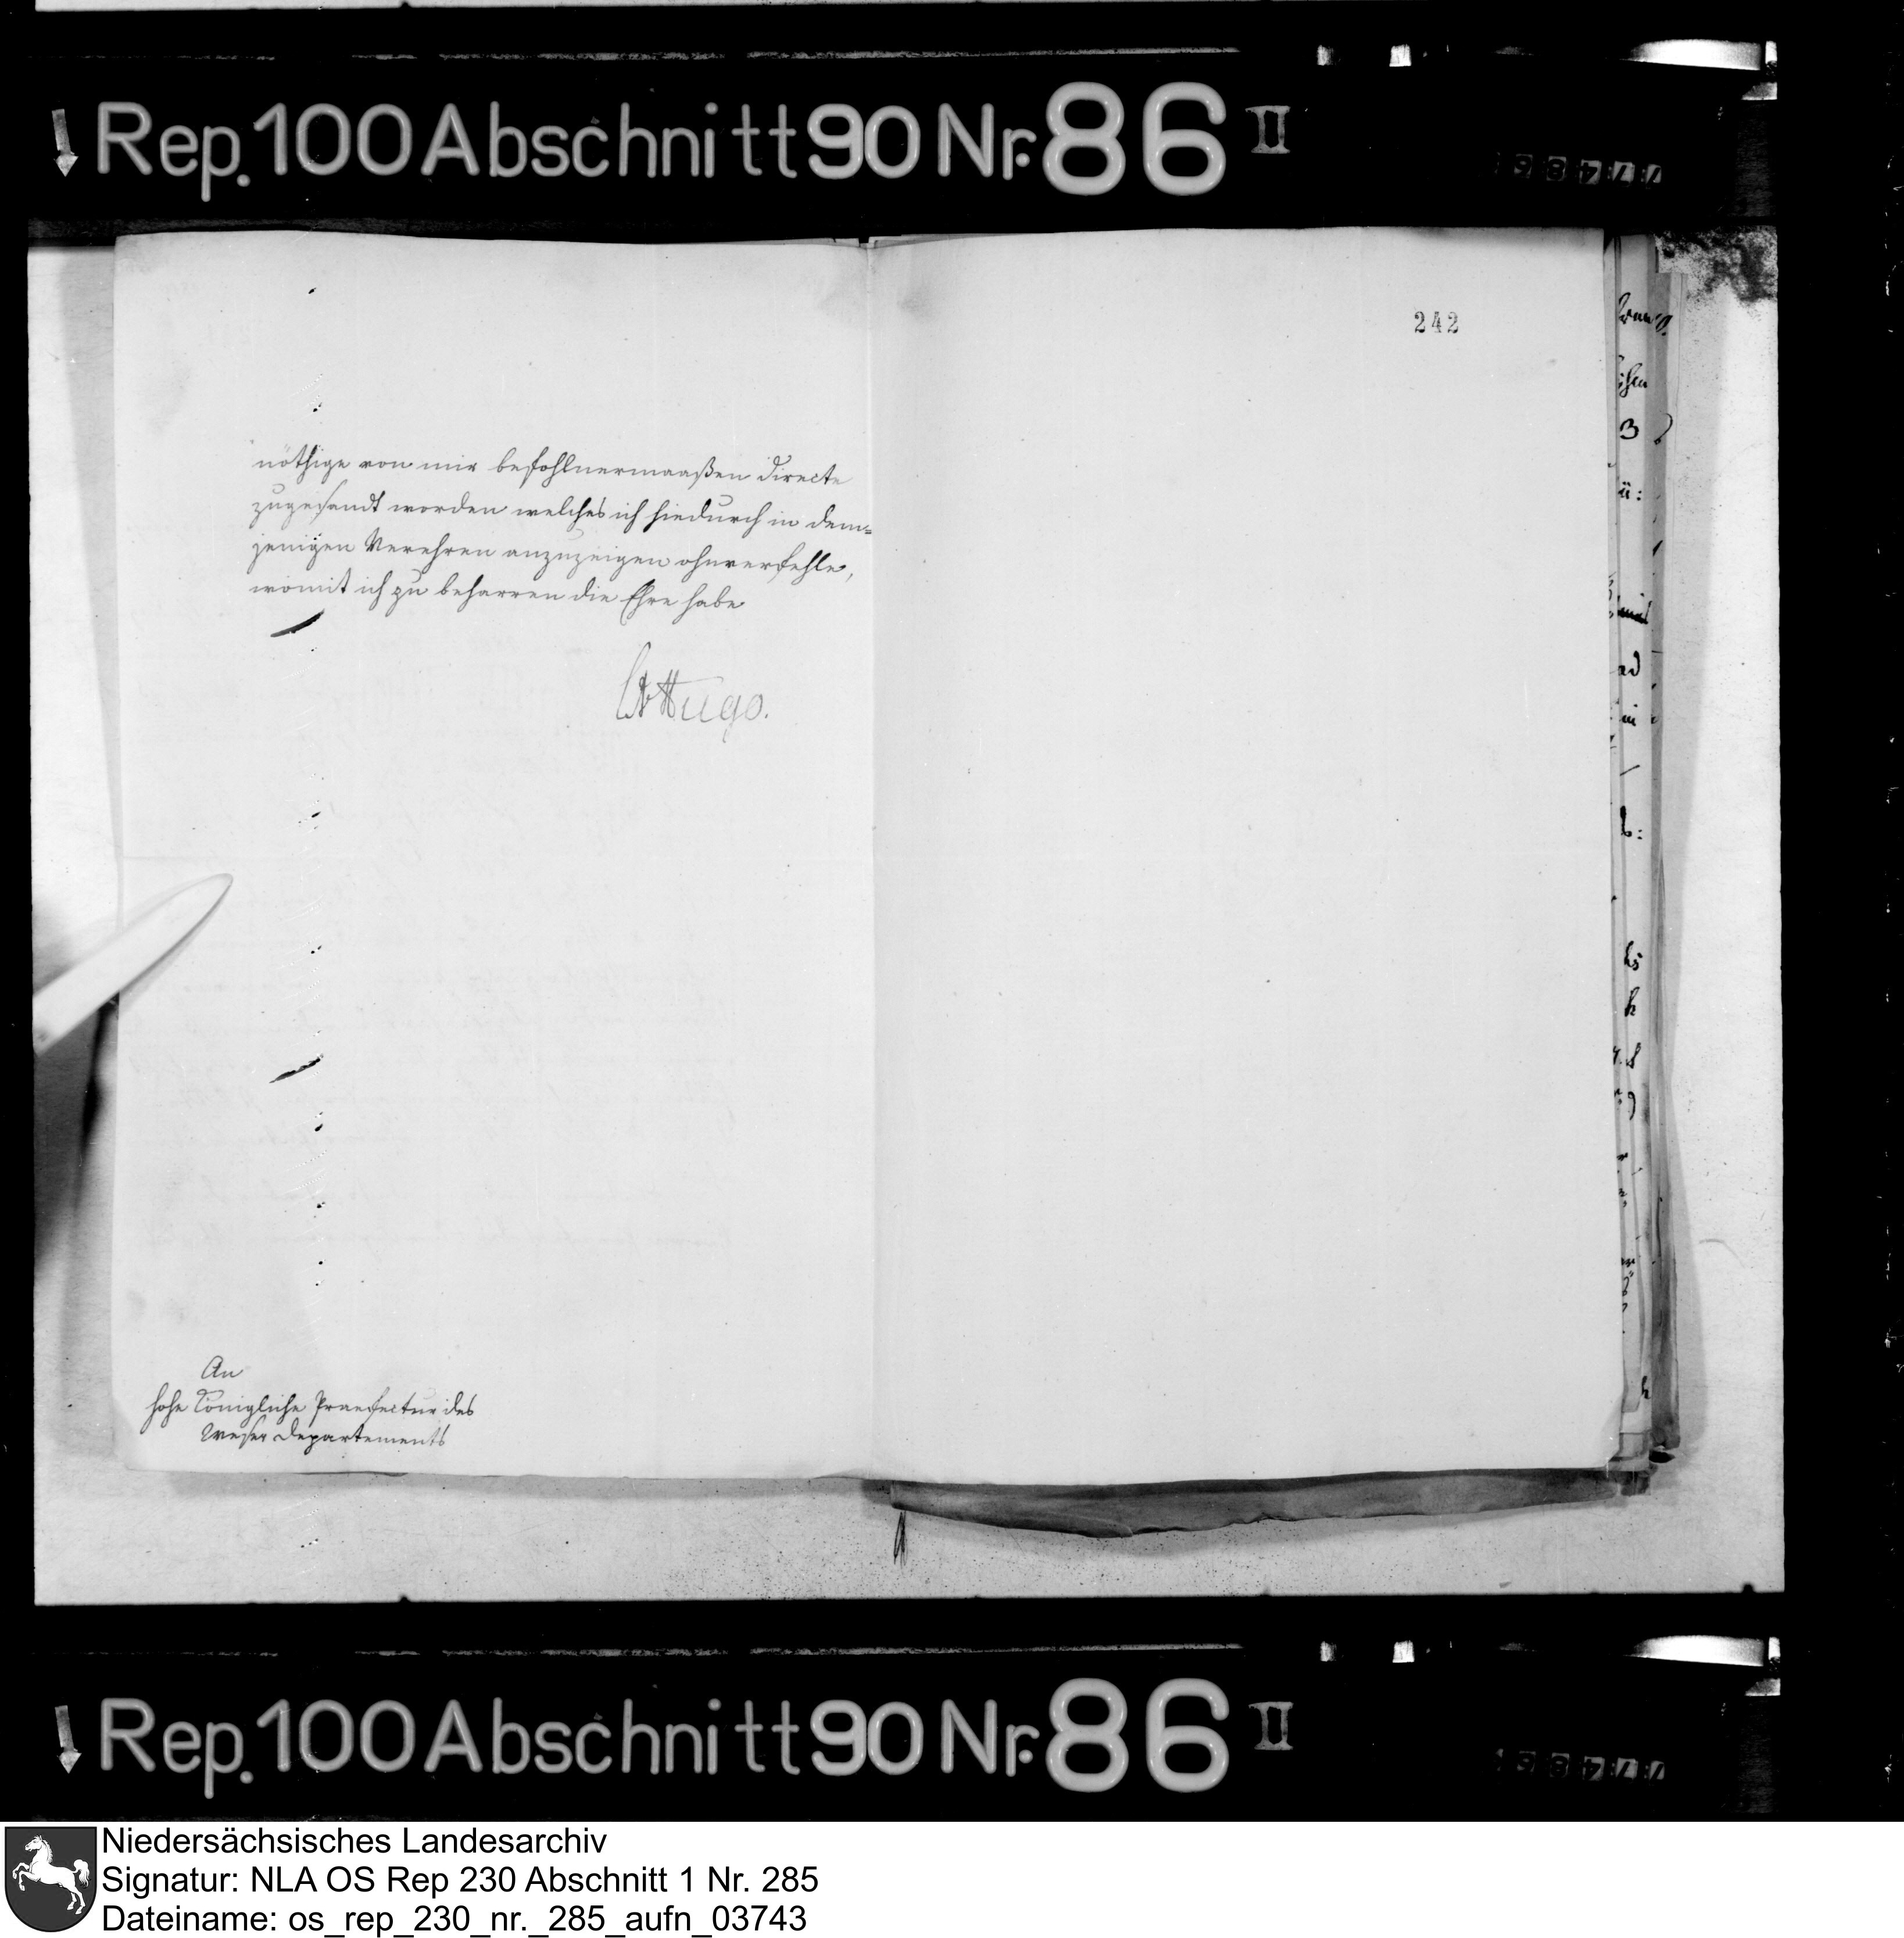 Rep. 100 Abschnitt 90 Nr. 86 II
242
nöthige von mir befohlnermaaßen directe
zugesandt worden welches ich hiedurch in dem-
jenigen Verehren anzuzeigen ohnverfehle,
womit ich zu beharren die Ehre habe
Hugo.
An
hohe Königliche Praefectur des
Weser Departements
Rep. 100 Abschnitt 90 Nr. 86 II
Niedersächsisches Landesarchiv
Signatur: NLA OS Rep 230 Abschnitt 1 Nr. 285
Dateiname: os_rep_230_nr._285_aufn_03743